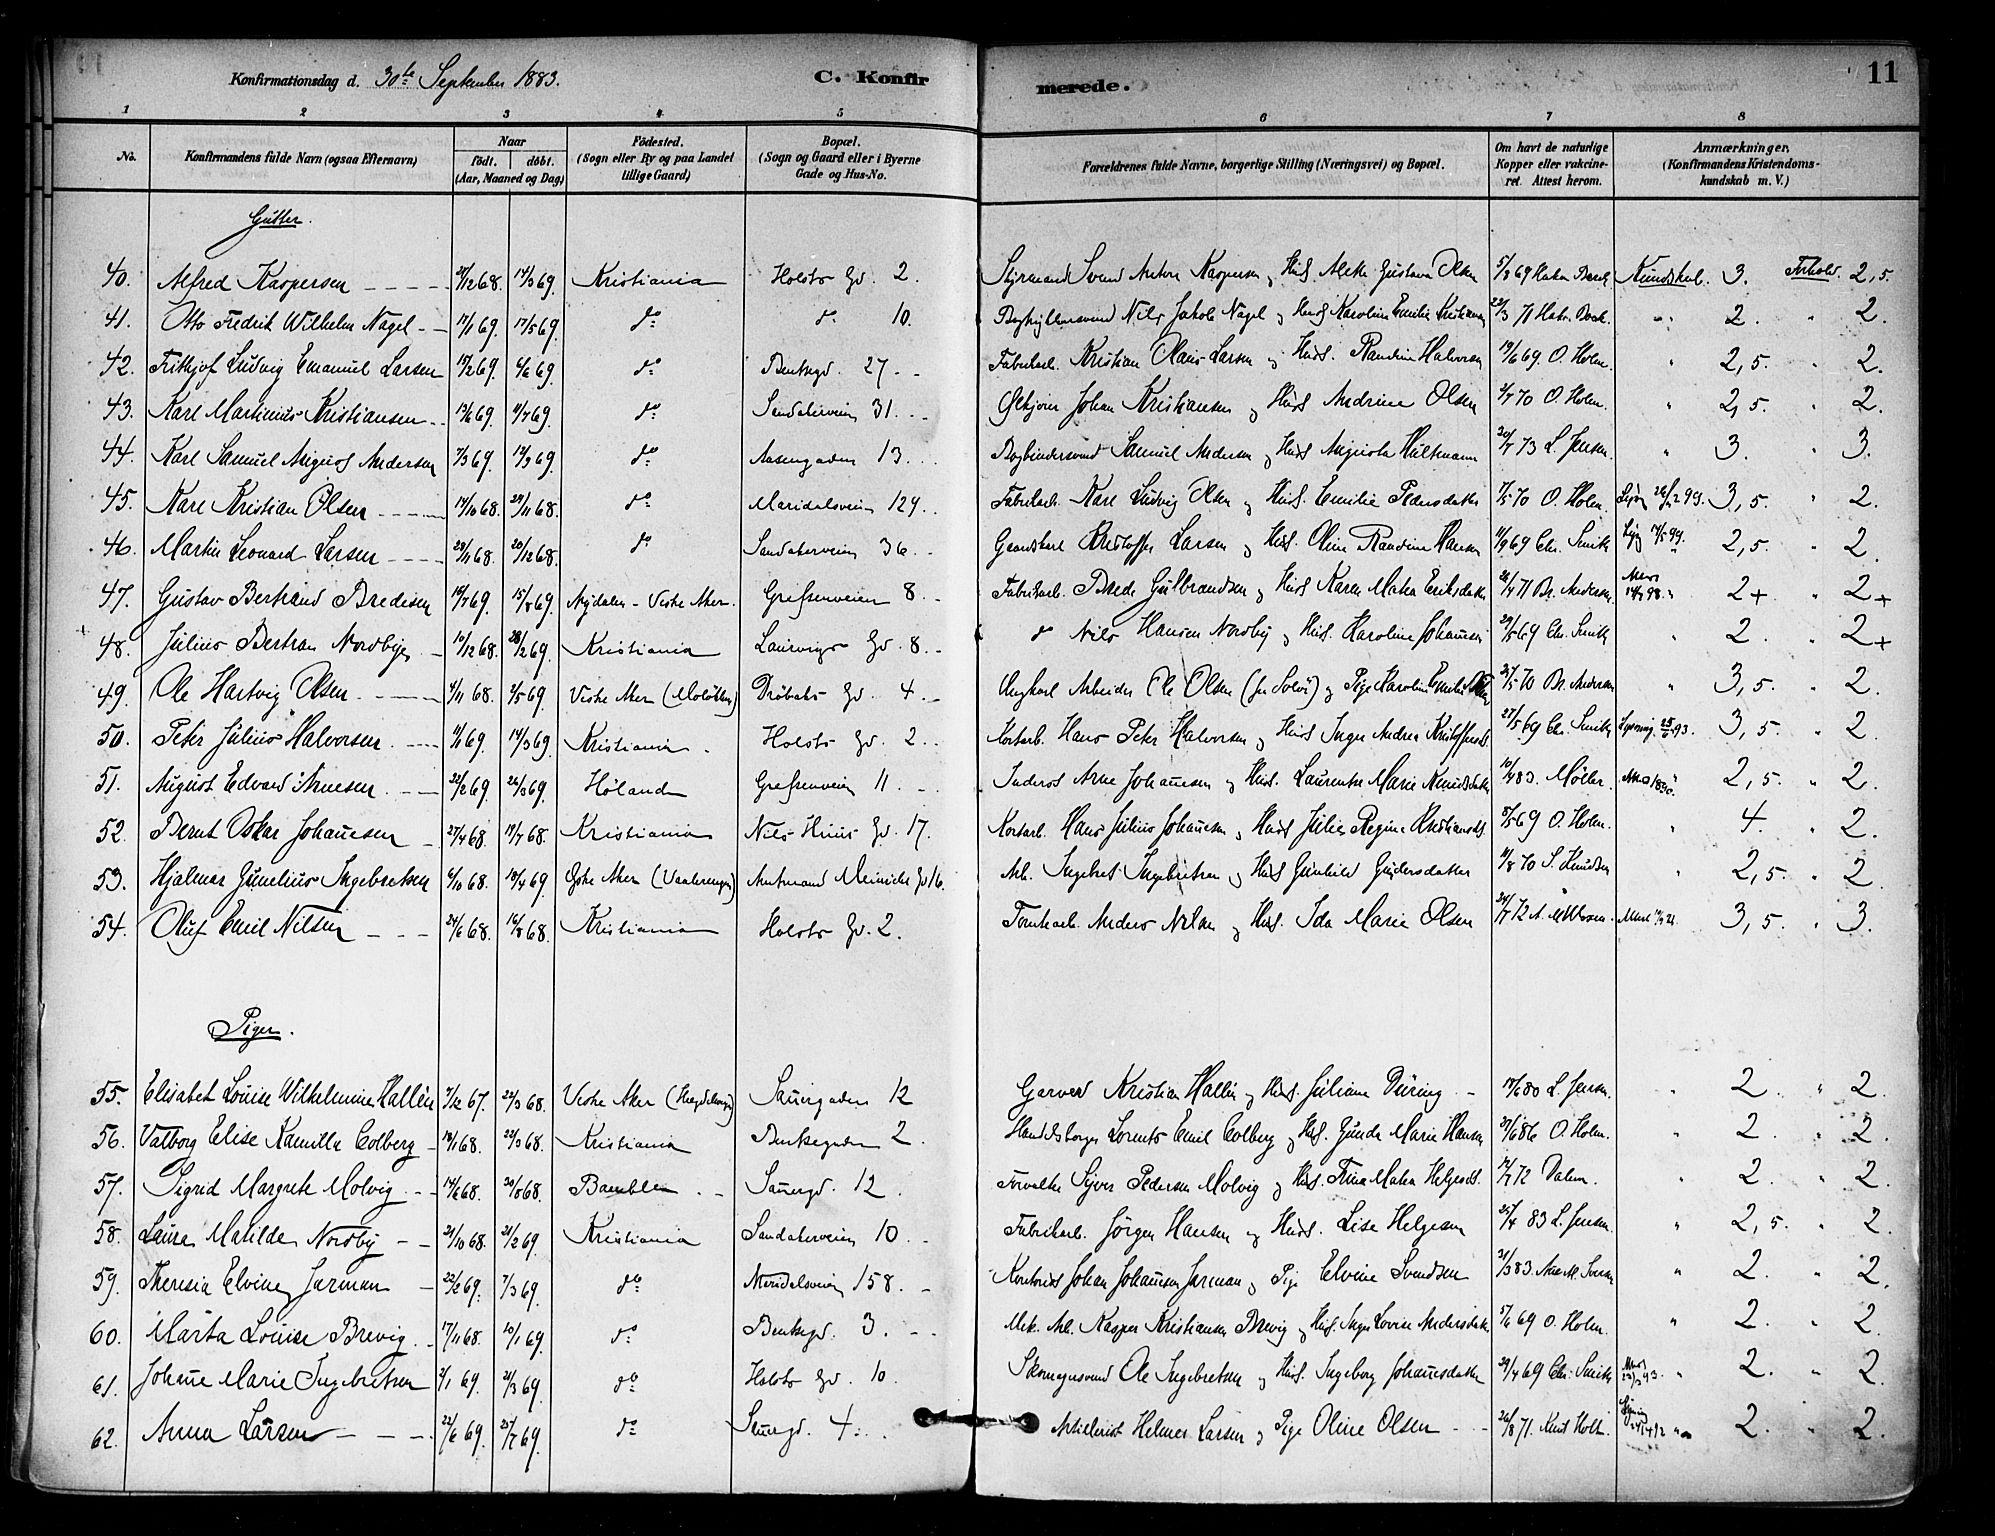 Konfirmationsdag d. 30te September 1883.
C. Konfirmerede.
11
1 2 3 4 5 6 7 8
No. Konfirmandens fulde Navn (ogsaa Efternavn) Naar födt. döbt. (Aar, Maaned og Dag) Födested. (Sogn eller By og paa Landet tillige Gaard) Bopæl. (Sogn og Gaard eller i Byerne Gade og Hus-No. Forældrenes fulde Navne, borgerlige Stilling (Næringsvei) og Bopæl. Om havt de naturlige Kopper eller vakcineret. Attest herom. Anmærkninger. (Konfirmandens Kristendomskundskab m. V.)
Gutter.
40. Alfred Kaspersen 12 68 14/3 69. Kristiania Holsts Gd. 2. Styrmand Svend Anton Kaspersen og Hust. Gustava Olsen 5/3 69 Kundskab. 3. Forhold. 2,5.
41. Otto Fredrik Wilhelm Nagel 17/1 69. 17/5 69. do do 10. Nils Jakob Nagel og Hust. Karoline Emilie Kristiansen 71 2. " 2.
42. Frithjof Ludvig Emanuel Larsen 15/2 69. 6/6 69. do Bentsegd. 27 Fabrikarb. Kristian Olaus Larsen og Hust. Randine Halvorsen 19/6 69 O. Holm. " 2,5. " 2.
43. Karl Martinius Kristiansen 13/6 69. 69. do Sandakerveien 31. Johan Kristiansen og Hust. Andrine Olsen 70 O. Holm. " 2,5. " 2.
44. Karl Samuel August Andersen 7/3 69. 69. do Aasengaden 13. Bogbindersvend Samuel Andersen og Hust. Augusta Hultmann 73 L. Jensen. " 3. 3.
45. Karl Kristian Olsen 14/10 68. 29/11 68. do Maridalsveien 129. Fabrikarb. Karl Ludvig Olsen og Hust. Emilie Pedersdatter 7/5 70 O. Holm. 99. 3,5. " 2.
46. Martin Leonard Larsen 68. 20/12 68. do Sandakerveien 36. Gaardskarl Kristoffer Larsen og Hust. Oline Randine Hansen 69 Chr. Smith 99. 2,5. " 2.
47. Gustav Bertrand Bredesen 69. 69. Nydalen - Vestre Aker. Grefsenveien 8. Fabrikarb. Brede Gulbrandsen og Hust. Karen Mathea Eriksdatter 71 Br. Andersen. 98. 2+ " 2+
48. Julius Bertran Nordbye 10/12 68. 28/2 69. Kristiania Laurvigs Gd. 8. do Nils Hansen Nordby og Hust. Karoline Johansen 69 Chr. Smith " 2. " 2+
49. Ole Hartvig Olsen 11 68. 5 69. Vestre Aker Drøbaks Gd. 4. Ungkarl Arbeider Ole Olsen og Pige Karoline 70 Br. Andersen " 3,5. " 2.
50. Peter Julius Halvorsen. 69. 14/3 69. Kristiania Holsts Gd. 2. Kortarb. Hans Peter Halvorsen og Hust. Inger Andrea 27/5 69 Chr. Smith 93. 3,5. " 2.
51. August Edvard Arnesen 22/2 69 69. Høland Grefsenveien 11. Inderst Arne Johansen og Hust. Laurentse Marie Knudsdatter 83. Møller. 2,5. " 2.
52. Bernt Oskar Johansen 27/4 68. 19/7 68. Kristiania Nils Huus Gd. 17. Kortarb. Hans Julius Johansen og Hust. Julie Regine 69 O. Holm. " 4. " 2.
53. Hjalmar Gunelius Ingebretsen 10 68. 4 69. Østre Aker (Vaalerengen) Amtmand Meinichs Gd 16. Arb. Ingebret Ingebretsen og Hust. Gunhild 70 S. Knudsen " 2,5. " 2.
54. Oluf Emil Nilsen 24/6 68. 16/8 68. Kristiania Holsts Gd. 2. Tomtearb. Anders Nilsen og Hust. Ida Marie Olsen 72 3,5. " 3.
Piger.
55. Elisabet Louise Wilhelmine Hallén 12 67. 22/3 68. Vestre Aker Sannergaden 12 Garver Kristian Hallén og Hust. Juliane Düring 80 L. Jensen. " 2. " 2.
56. Valborg Elise Kamilla Colberg 19/1 68. 22/3 68. Kristiania Bentsegaden 2. Handelsborger Lorents Emil Colberg og Hust. Gunda Marie Hansen O. Holm. " 2. " 2.
57. Sigrid Margrete Molvig 14/6 68. 68. Bamble Sannergd. 12. Forvalter Syver Pedersen Molvig og Hust. Trina Mathea 72 Dalen. " 2. " 2.
58. Laura Matilde Nordby 21/10 68. 21/2 69. Kristiania Sandakerveien 10. Fabrikarb. Jörgen Hansen og Hust. Lise Helgesen 25/4 83 L. Jensen. " 2,5. " 2.
59. Theresia Elvine Jarman 22/2 69. 7/3 69. do Maridalsveien 158. Johan Johansen Jarman og Pige Elvine Svendsen 31/3 83. " 2. " 2.
60. Marta Louise Brevig 17/11 68. 10/1 69. do Bentsegd. 3. Mek. Arb. Kasper Kristiansen Brevig og Hust. Inger Lovise Andersdatter 69 O. Holm. " 2. " 2.
61. Johanne Marie Ingebretsen 1 69. 21/3 69. do Holsts Gd. 10. Skomagersvend Ole Ingebretsen og Hust. Ingeborg Johannesdatter 29/4 69 Chr. Smith 93. " 2. " 2.
62. Anna Larsen 22/6 69. 25/7 69. do Sannergd. 4. Artillerist Helmer Larsen og Pige Oline Olsen 26/8 71. Knut Holt. " 2. " 2.